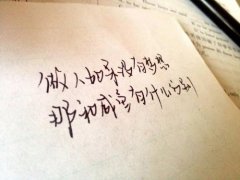 做人如果没有梦想
那和咸鱼有什么分别